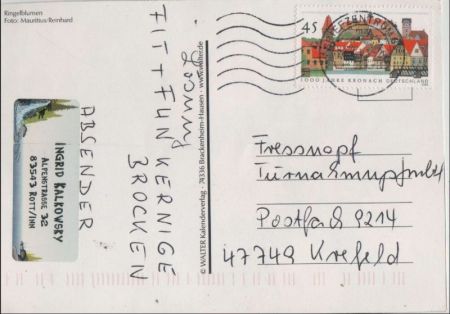 Ringelblumen
Foto: Mauritius/Reinhard
45
BRIEFZENTRUM
1000 JAHRE KRONACH DEUTSCHLAND
Lösung
FIT + FUN KERNIGE
BROCKEN
ABSENDER
INGRID KALKOWSKY
ALPENSTRASSE 32
83543 ROTT/INN
© WALTER Kalenderverlag · 74336 Brackenheim-Hausen · www.walter.de
Fressnapf
Postfach 9214
47749 Krefeld